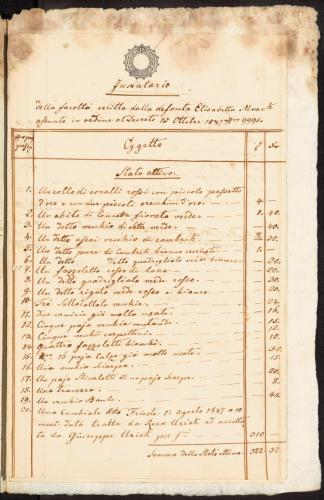 Inventario
della facoltà relitta dalla defonta Elisabetta
assunto in ordine al Decreto 12 Ottobre 1847 N° 9995.
Oggetto f Xr
Stato attivo.
1. Un collo di coralli rossi con piccolo
d'oro e un due piccoli orecchini d'oro. 4 —
2. Un abito di fiorato verde 1 40.
3. Un detto vecchio di seta verde — 40.
4. Un detto assai vecchio di cambrik 20.
5. Un detto pure di cambrik bianco 1 —
6. Un detto detto quadrigliato verde bianco 30.
7. Un fazzoletto rosso di lana 20.
8. Un detto quadrigliato verde rosso 30.
9. Un detto rigato verde rosso e bianco 20.
10. Tre vecchie 24.
11. Due camicie già molto usate 16.
12. Cinque paja vecchie mutande 15.
13. Cinque vecchi corpettini
14. Quattro fazzoletti bianchi
15. 16 paja calze già molto usate 15.
16. Una vecchia sciarpa
17. Un pajo Stivaletti e un pajo scarpe 20.
18. Una traversa 8.
19. Un vecchio Baule 40.
20. Una Cambiale dto Trieste 12 agosto 1847 a 10
mesi data tratta da Rosa Urich ed accetta
ta da Giuseppe Urich per f 310 —
Somma dello Stato attivo 322 32.